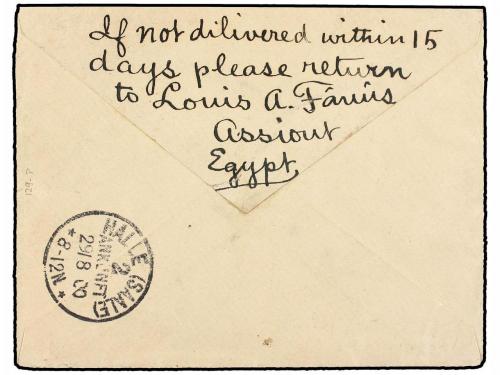 If not dilivered within 15
days please return
to Louis A. Fanùs
Assiout
Egypt
129-P
HALLE (SAALE)
2
ANKUNFT
29/8 00
* 8-12N *